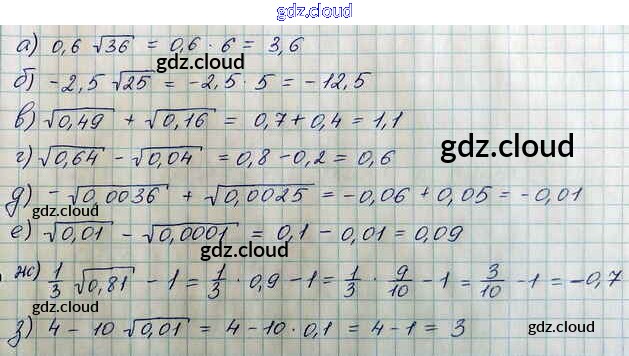 gdz.cloud
а) 0,6 √36 = 0,6 · 6 = 3,6
gdz.cloud
б) -2,5 √25 = -2,5 · 5 = -12,5
в) √0,49 + √0,16 = 0,7 + 0,4 = 1,1
gdz.cloud
г) √0,64 - √0,04 = 0,8 - 0,2 = 0,6
д) -√0,0036 + √0,0025 = -0,06 + 0,05 = -0,01
gdz.cloud gdz.cloud
е) √0,01 - √0,0001 = 0,1 - 0,01 = 0,09
gdz.cloud
ж) 1/3 √0,81 - 1 = 1/3 · 0,9 - 1 = 1/3 · 9/10 - 1 = 3/10 - 1 = -0,7
gdz.cloud
з) 4 - 10 √0,01 = 4 - 10 · 0,1 = 4 - 1 = 3
gdz.cloud